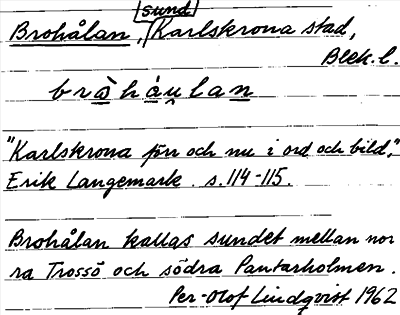 sund
Brohålan, Karlskrona stad,
Blek. l.
brå̀háu̯lan
"Karlskrona förr och nu i ord och bild,"
Erik Langemark. s. 114-115.
Brohålan kallas sundet mellan nor
ra Trossö och södra Pantarholmen.
Per-Olof Lindqvist 1962